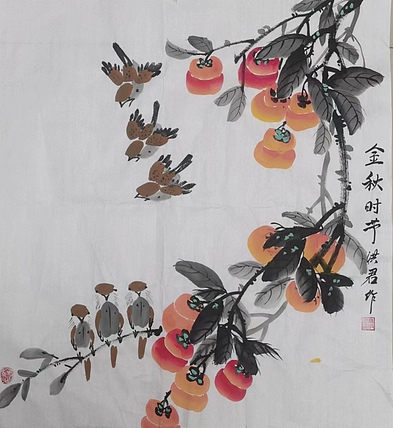 金秋时节洪君作